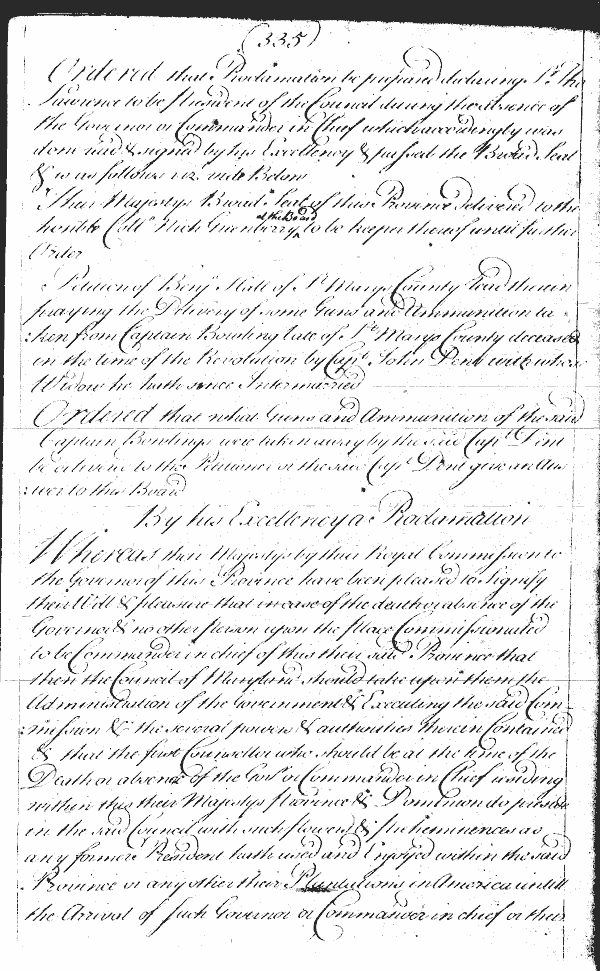 (335)
Ordered that Proclamation be prepared declaring Sr. Tho
Lawrence to be President of the Council during the absence of
the Governor or Commander in Chief which accordingly was
done read & signed by his Excellency & passed the Broad Seal
& is as follows vizt. vide Below
Their Majestys Broad Seal of this Province delivered to the
honble Collo. Nich Greenberry at the Board to be keeper thereof until further
Order
Petition of Benj. Hall of St. Marys County read therein
praying the Delivery of some Guns and Ammunition ta
:ken from Captain Bowling late of St. Marys County deceased
in the time of the Revolution by Capt. John Dent with whose
Widow he hath since Intermarried
Ordered that what Guns and Ammunition of the said
Captain Bowlings were taken away by the said Capt. Dent
be delivered to the Petitioner or the said Capt. Dent give an Ans
:wer to this Board
By his Excellency a Proclamation
Whereas their Majestys by their Royal Commission to
the Governor of this Province have been pleased to signify
their Will & pleasure that in case of the death or absence of the
Governor & no other person upon the place Commissionated
to be Commander in chief of this their said Province that
then the Council of Maryland should take upon them the
Administration of the Government & Executing the said Com-
:mission & the several powers & authorities therein Contained
& that the first Counsellor who should be at the time of the
Death or absence of the Govr. or Commander in Chief residing
within this their Majestys Province & Dominion do preside
in the said Council with such Powers & Preheminences as
any former President hath used and Enjoyed within the said
Province or any other their Plantations in America untill
the Arrival of such Governor or Commander in chief or their